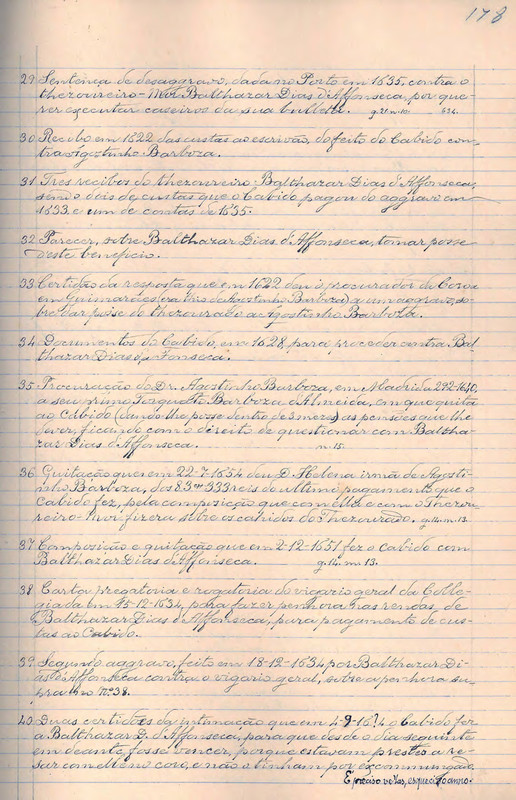 178
29 Sentença de desaggravo, dada no Porto em 1635, contra o
thezoureiro-Mór Balthazar Dias d'Affonseca, por que-
rer executar caseiros da sua bulleta. g. 21 m. 10. 634.
30 Recibo em 1622 das custas ao escrivão, do feito do Cabido con-
tra Agostinho Barboza.
31 Tres recibos do thezoureiro Balthazar Dias d'Affonseca,
sendo dois de custas que o Cabido pagou do aggravo em
1633 e um de contas de 1635.
32 Parecer, sobre Balthazar Dias d'Affonseca, tomar posse
deste beneficio.
33 Certidão da resposta que em 1622 deu o procurador da Coroa
em Guimarães (era tio de Agostinho Barboza) a um aggravo, so-
bre dar posse do thezourado a Agostinho Barboza.
34 Documentos do Cabido, em 1628 para proceder contra Bal-
thazar Dias da Fonseca.
35 Procuração do Dr. Agostinho Barboza, em Madrid a 29-2-1640,
a seu primo Torquato Barboza d'Almeida, em que quita
ao Cabido (dando-lhe posse dentro de 3 mezes) as pensões que lhe
dever, ficando com o direito de questionar com Baltha-
zar Dias d'Affonseca. m. 15.
36 Quitação que em 22-7-1654 deu D. Helena irmã de Agosti-
nho Barboza, dos 83 333 reis do ultimo pagamento que o
Cabido fez, pela composição que com ella e com o Thezou-
reiro-Mor fizera sobre os cahidos do Thezourado. g. 14. m. 13.
37 Composição e quitação que em 2-12-1651 fez o cabido com
Balthazar Dias d'Affonseca. g. 14. m. 13.
38 Carta pregatoria e rogatoria do vigario geral da Colle-
giada em 15-12-1634, para fazer penhora nas rendas, de
Balthazar Dias d'Affonseca, para pagamento de cus-
tas ao Cabido.
39 Segundo aggravo, feito em 18-12-1634 por Balthazar Di-
as d'Affonseca contra o vigario geral, sobre a penhora su-
pra no Nº 38.
40 Duas certidões da intimação que em 4-9- o Cabido fez
a Balthazar D. d'Affonseca, para que desde o dia seguinte
em deante fosse vencer, porque estavam prestes a re-
sar com elle no coro, e não o tinham por excommungado.
É preciso vel-as, esqueci o anno.